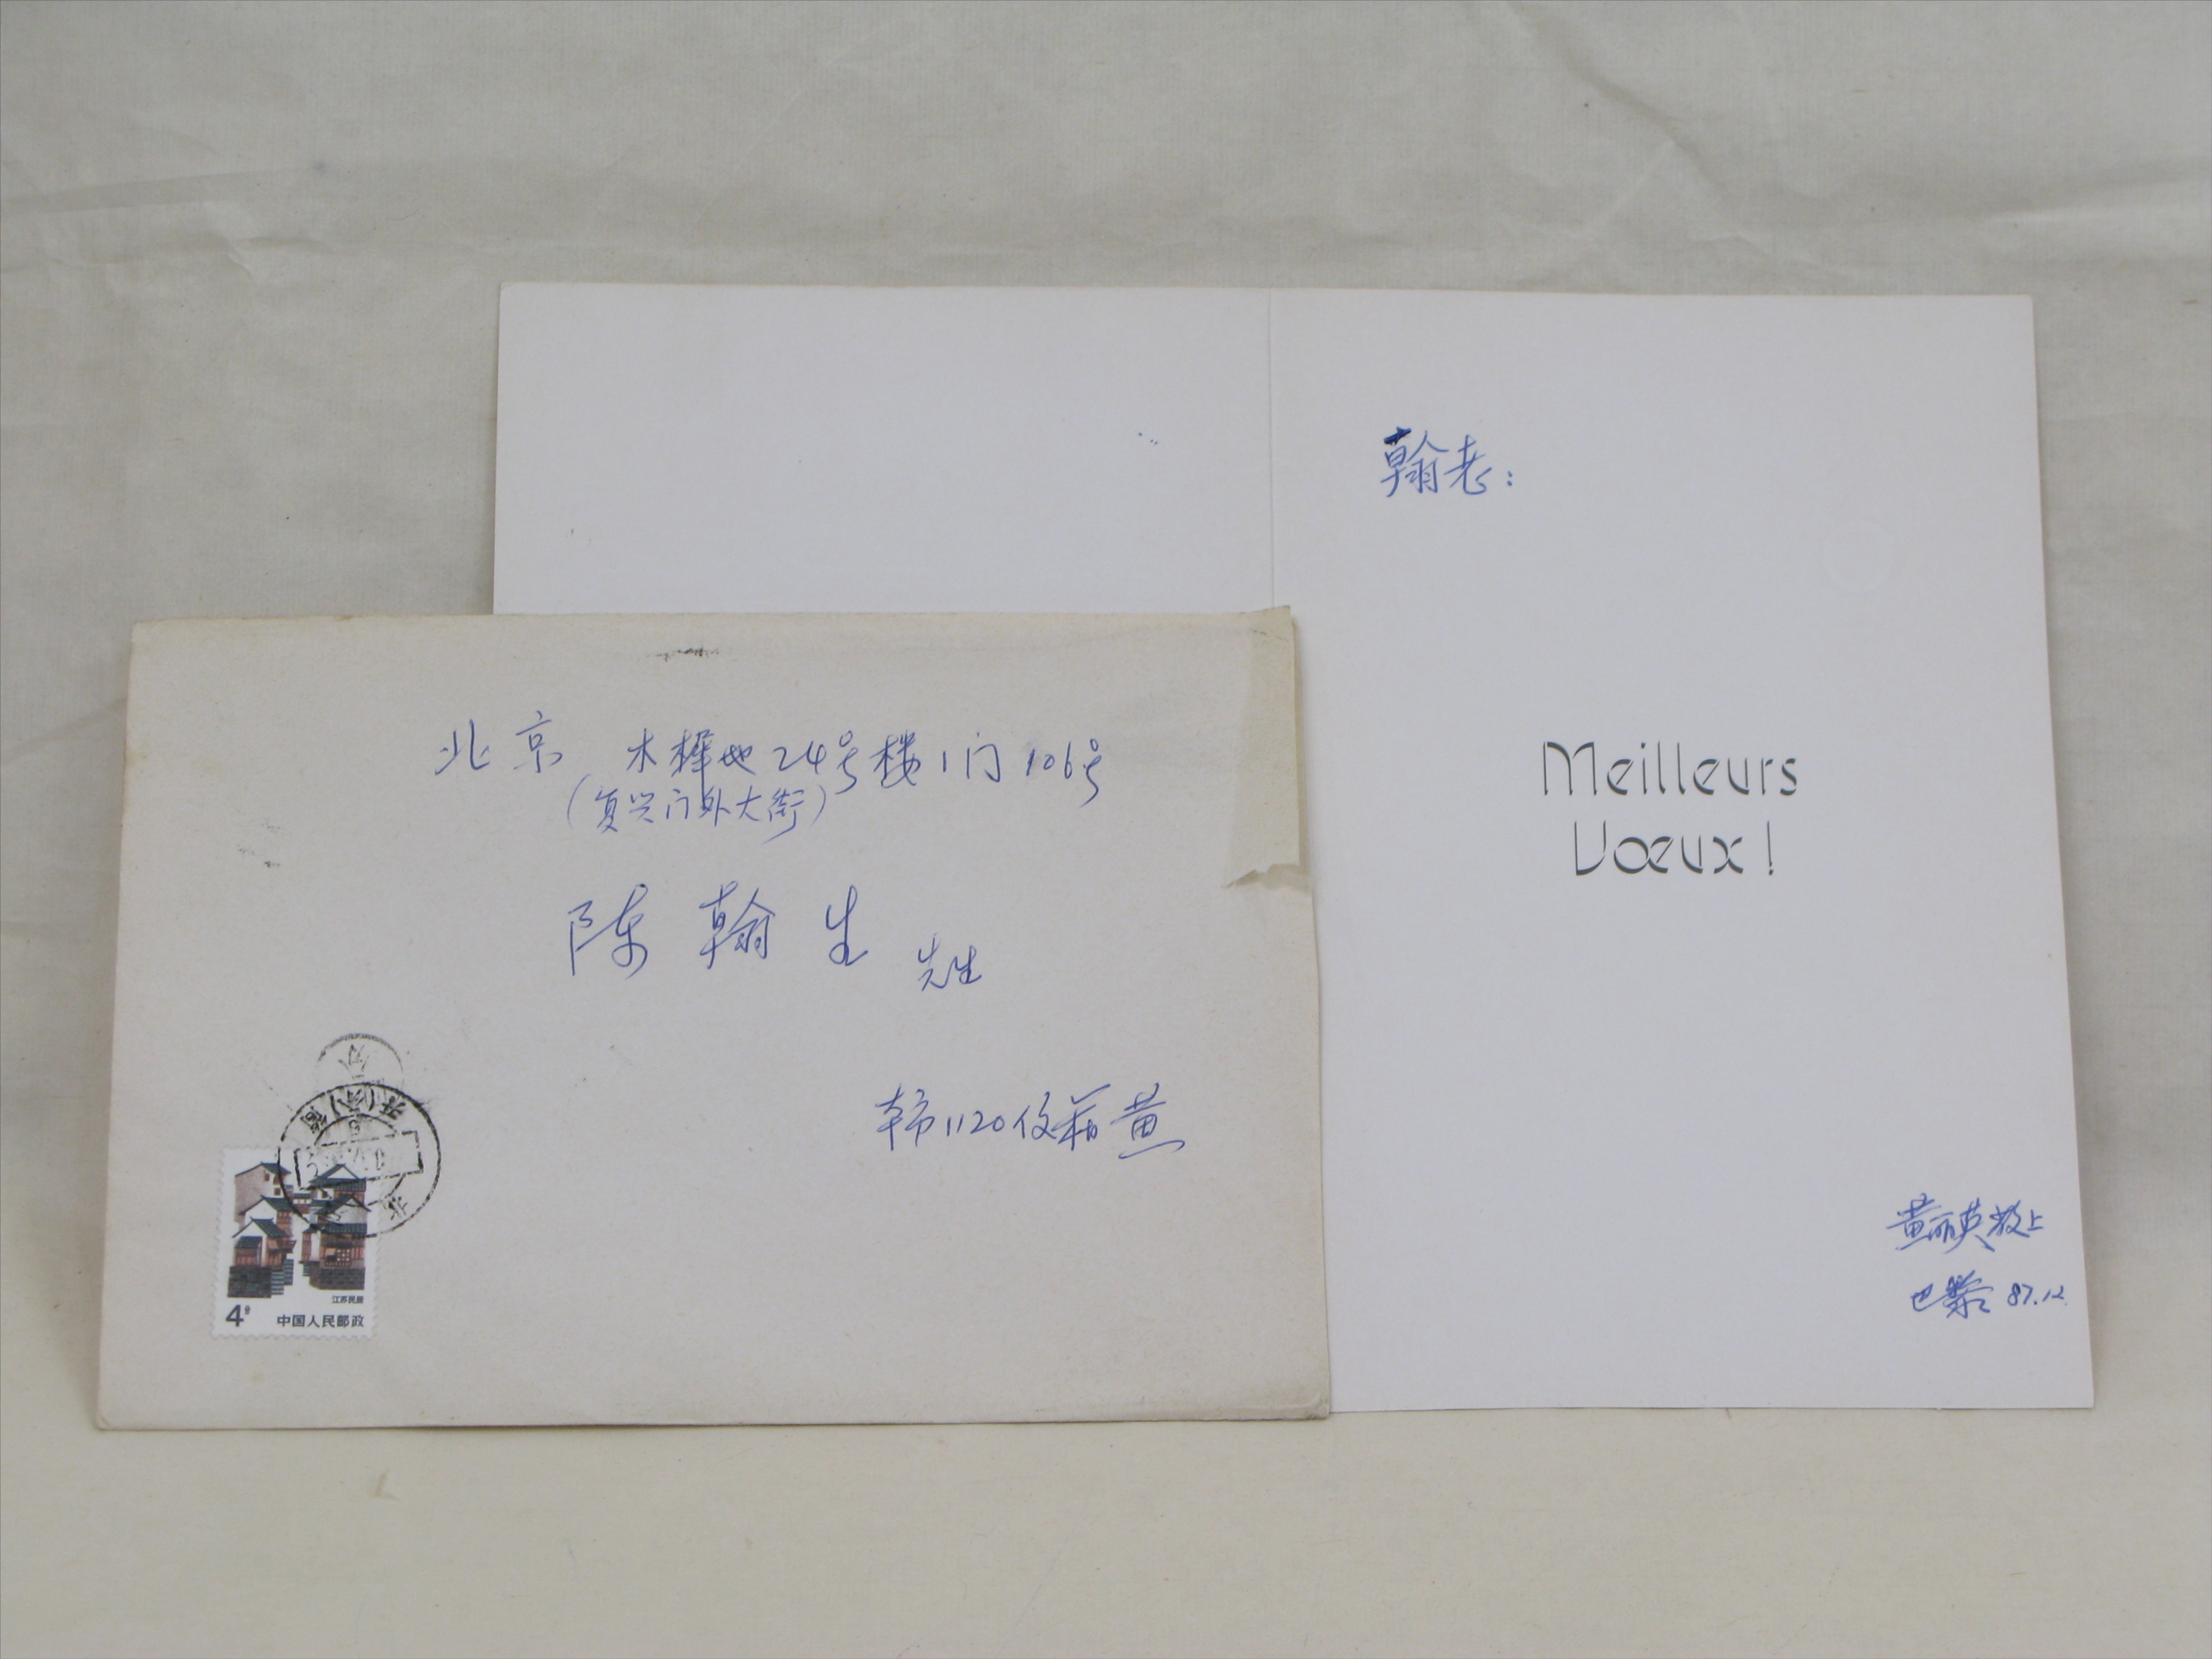 北京 木樨地24号楼1门106号
(复兴门外大街)
陈翰生 先生
1120 黄
江苏民居
4分 中国人民邮政
翰老:
Meilleurs
Vœux!
黄丽英敬上
巴黎 87.12.